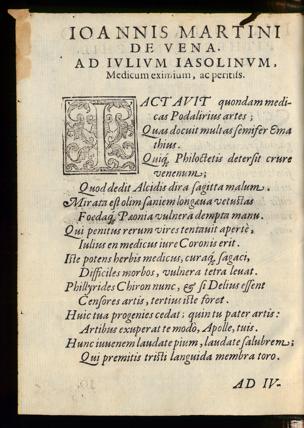 IOANNIS MARTINI
DE VENA.
AD IVLIVM IASOLINVM,
Medicum eximium, ac peritiss.
IACTAVIT quondam medi-
cas Podalirius artes;
Quas docuit multas semifer Ema
thius.
Quiq; Philoctetis detersit crure
venenum;
Quod dedit Alcidis dira sagitta malum.
Mirata est olim saniem longaua vetustas
Foedaq; Paonia vulnera dempta manu.
Qui penitus rerum vires tentauit apertè,
Iulius en medicus iure Coronis erit.
Iste potens herbis medicus, curaq; sagaci,
Difficiles morbos, vulnera tetra leuat.
Phillyrides Chiron nunc, & si Delius essent
Censores artis, tertius iste foret.
Huic tua progenies cedat; quin tu pater artis:
Artibus exuperat te modo, Apolle, tuis.
Hunc iuuenem laudate pium, laudate salubrem;
Qui premitis tristi languida membra toro.
AD IV-